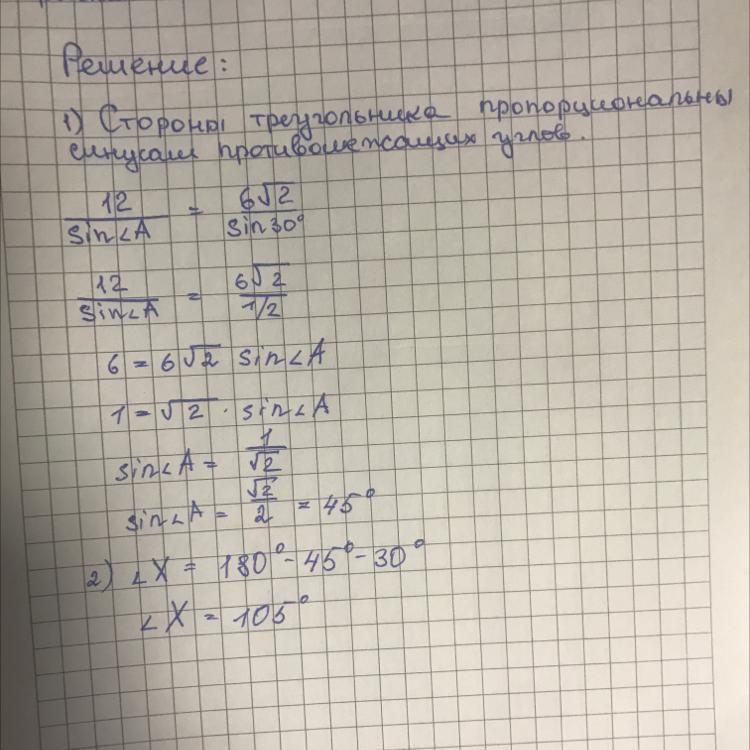 Решение:
1) Стороны треугольника пропорциональны
синусам противолежащих углов.
12/sin∠A = 6√2/sin30°
12/sin∠A = 6√2/1/2
6 = 6√2 sin∠A
1 = √2 · sin∠A
sin∠A = 1/√2
sin∠A = √2/2 = 45°
2) ∠X = 180° - 45° - 30°
∠X = 105°